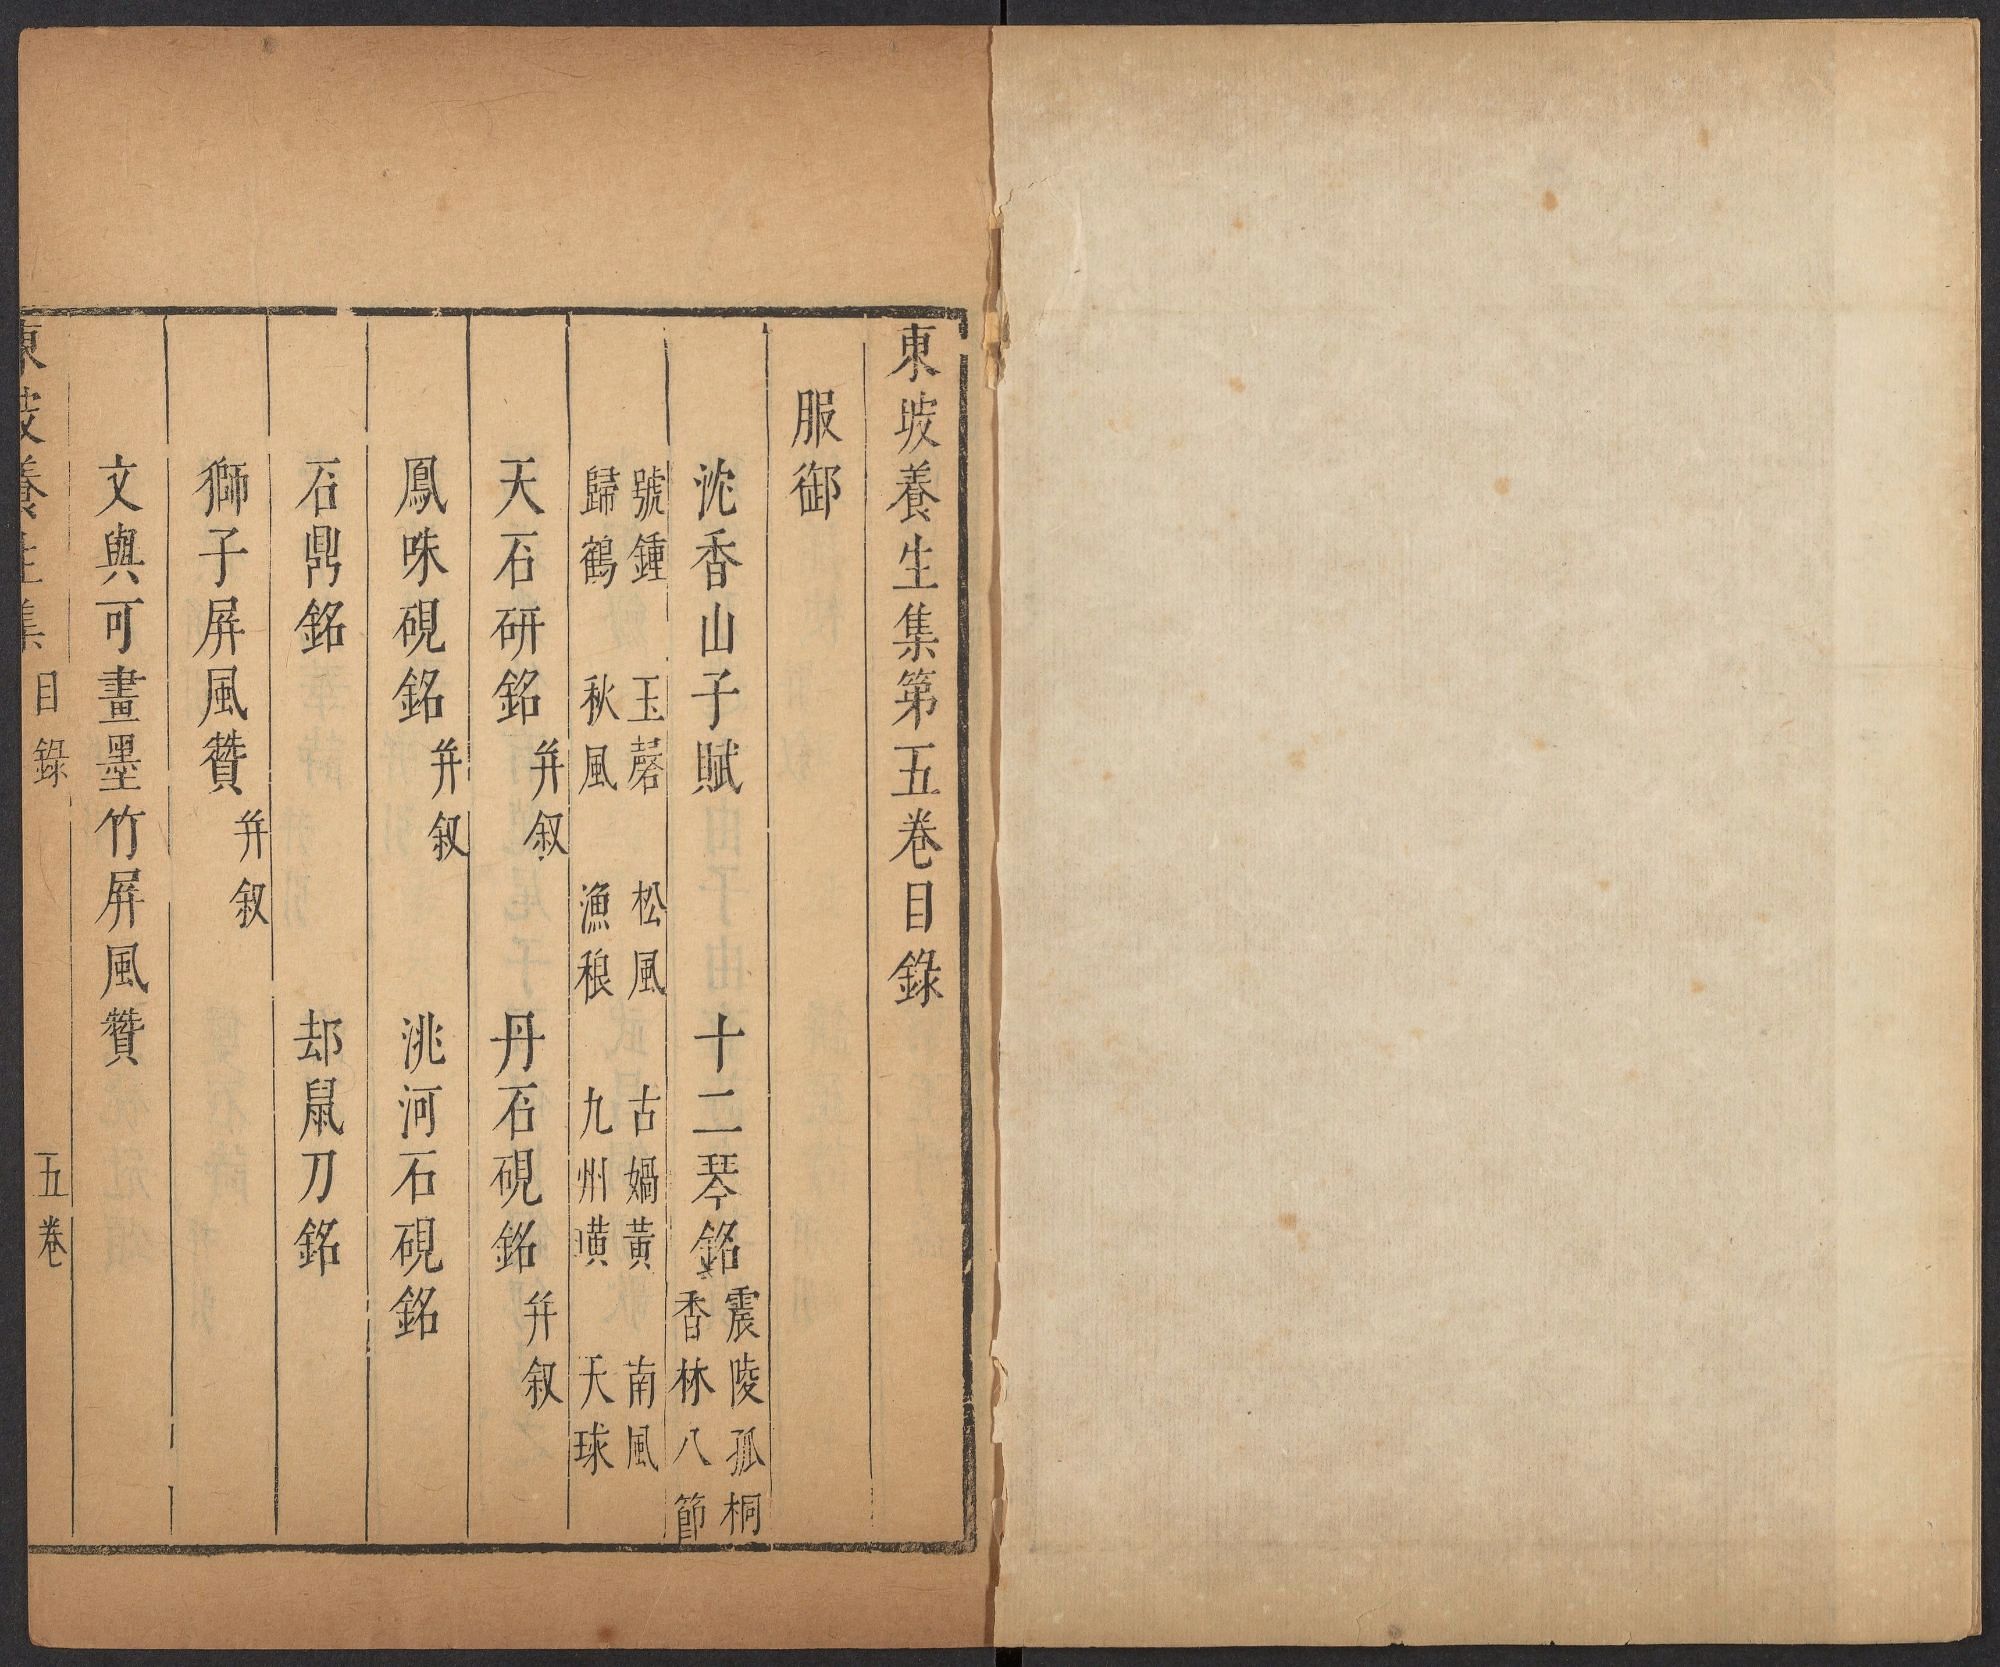 東坡養生集第五卷目錄
服御
沈香山子賦 十二琴銘 震陵孤桐 香林八節
號鍾 玉磬 松風 古媧黃 南風
歸鶴 秋風 漁稂 九州璜 天球
天石研銘 并叙 丹石硯銘 并叙
鳳咮硯銘 并叙 洮河石硯銘
石鼎銘 却鼠刀銘
獅子屏風贊 并叙
文與可畫墨竹屏風贊
東坡養生集 目錄 五卷